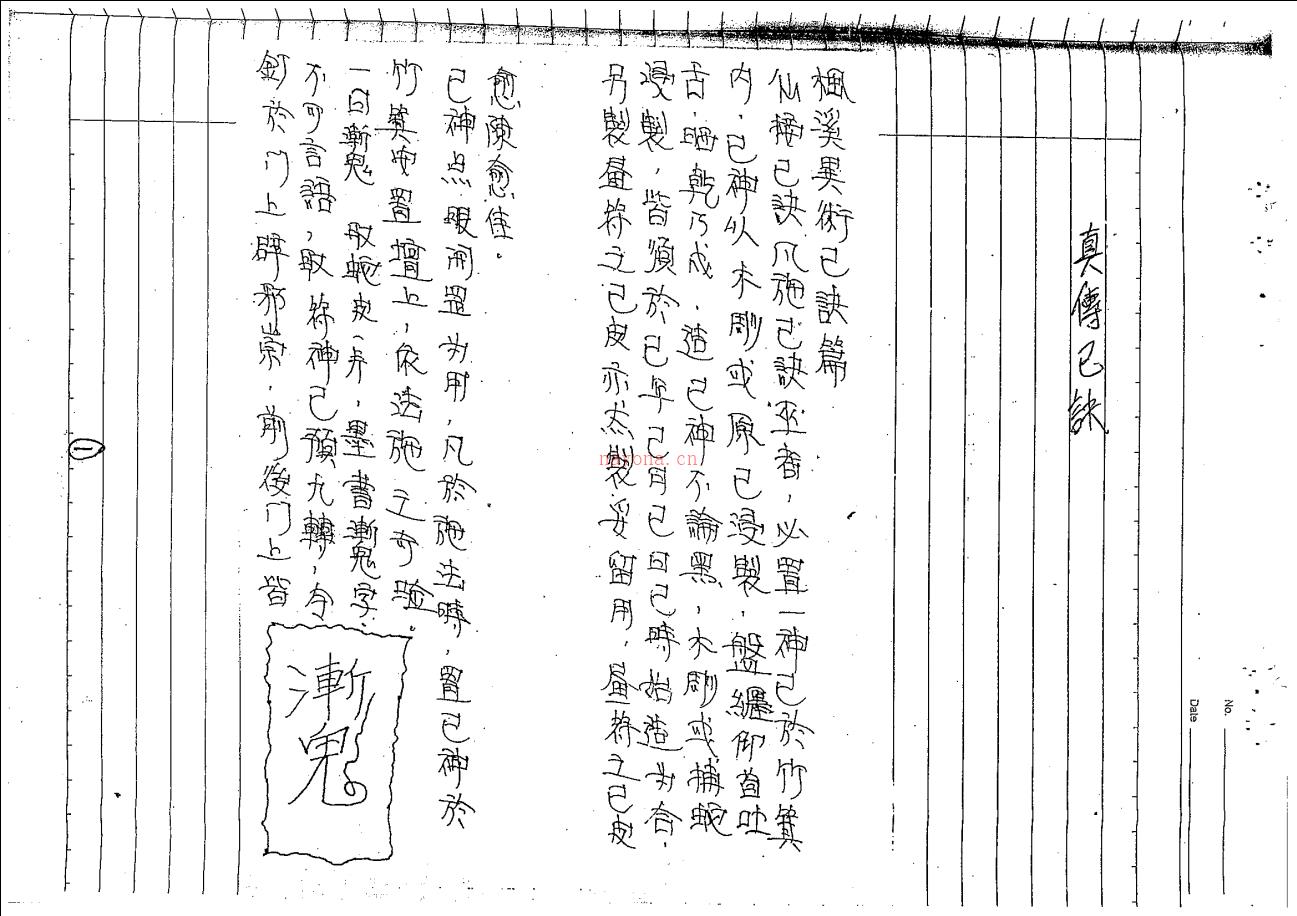 真傳已訣
楓溪異術已訣篇
仙摇已訣凡施已訣巫者，必置一神已於竹箕
内．已神以木剛或原已浸製．盤纏仰首吐
舌．晒乾乃成．造已神不論黑，木剛或捕蛇
浸製，皆須於已年已月已日已時始造为合．
另製畫符之已皮亦杰製妥留用．畫符之已皮
愈陳愈佳．
已神点眼開罡为用，凡於施法時，置已神於
竹箕安置壇上，依法施之奇验．
一曰漸鬼 取蛇皮一张，墨書漸鬼字．
不可言語，取符神已預九轉，令
釘於门上辟邪祟．前後门上皆
漸鬼
一
No.
Date
narona.cn